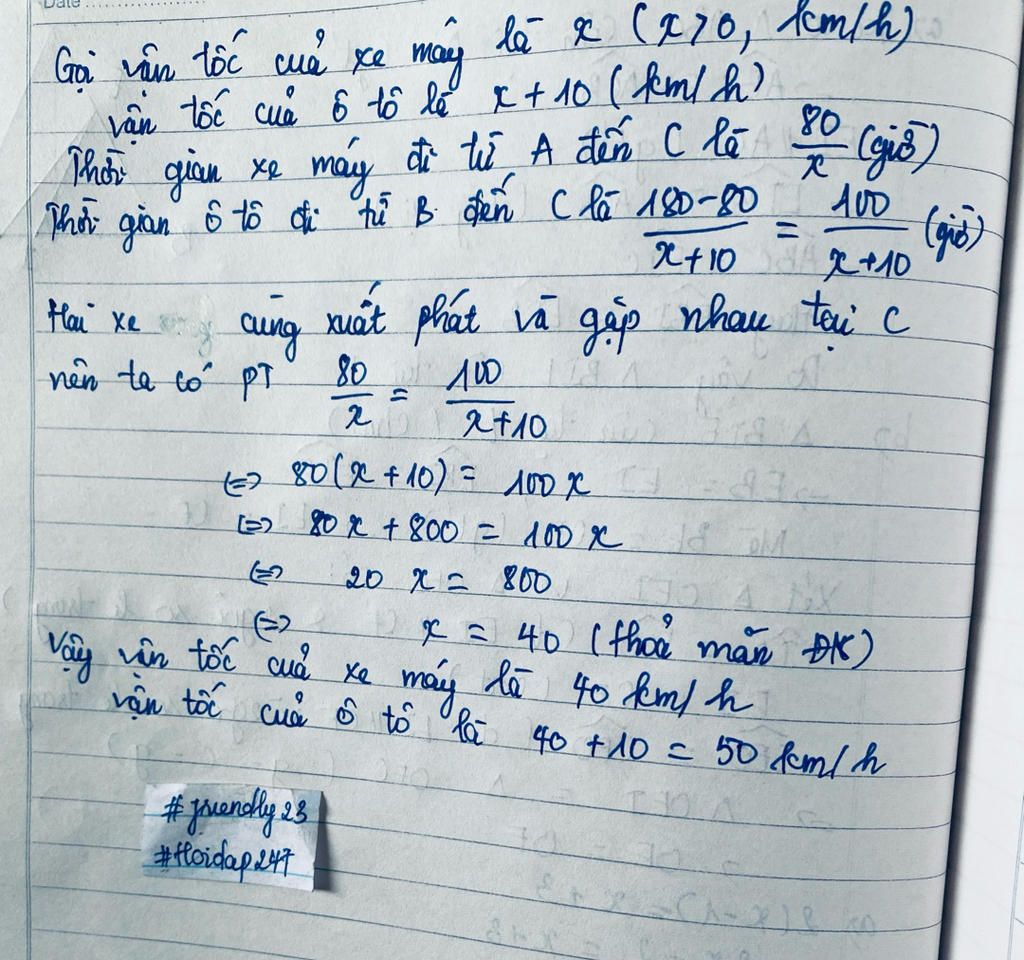 Date
Gọi vận tốc cuả xe máy là x (x>0, km/h)
vận tốc cuả ô tô là x + 10 (km/h)
Thời gian xe máy đi từ A đến C là 80/x (giờ)
Thời gian ô tô đi từ B đến C là (180-80)/(x+10) = 100/(x+10) (giờ)
Hai xe cùng xuất phát và gặp nhau tại C
nên ta có PT 80/x = 100/(x+10)
<=> 80(x + 10) = 100x
<=> 80x + 800 = 100x
<=> 20x = 800
<=> x = 40 (thoả mãn ĐK)
Vậy vận tốc cuả xe máy là 40 km/h
vận tốc cuả ô tô là 40 + 10 = 50 km/h
#friendly23
#Hoidap247